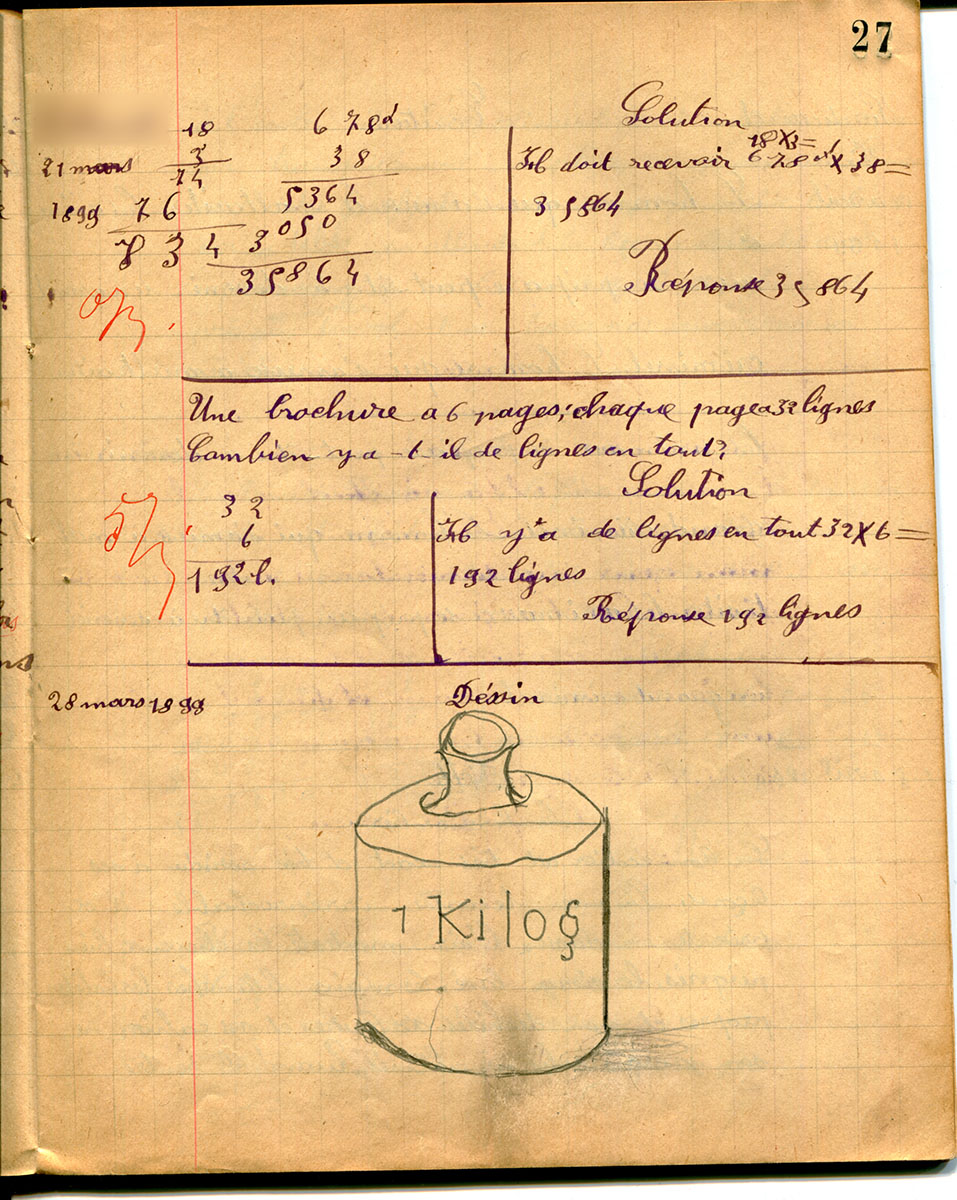 27
18 6 78d
21 mars 3 38
74 5364
1899 76 3050
8 3 4
35864
Solution
18X3=
Il doit recevoir 678d X 38=
35864
Réponse 35864
0/3
Une brochure a 6 pages; chaque page a 32 lignes
Combien y a-t-il de lignes en tout?
Solution
32
6
192 l.
5/3
Il y'a de lignes en tout 32X6=
192 lignes
Réponse 192 lignes
28 mars 1899
Déssin
1 Kilog